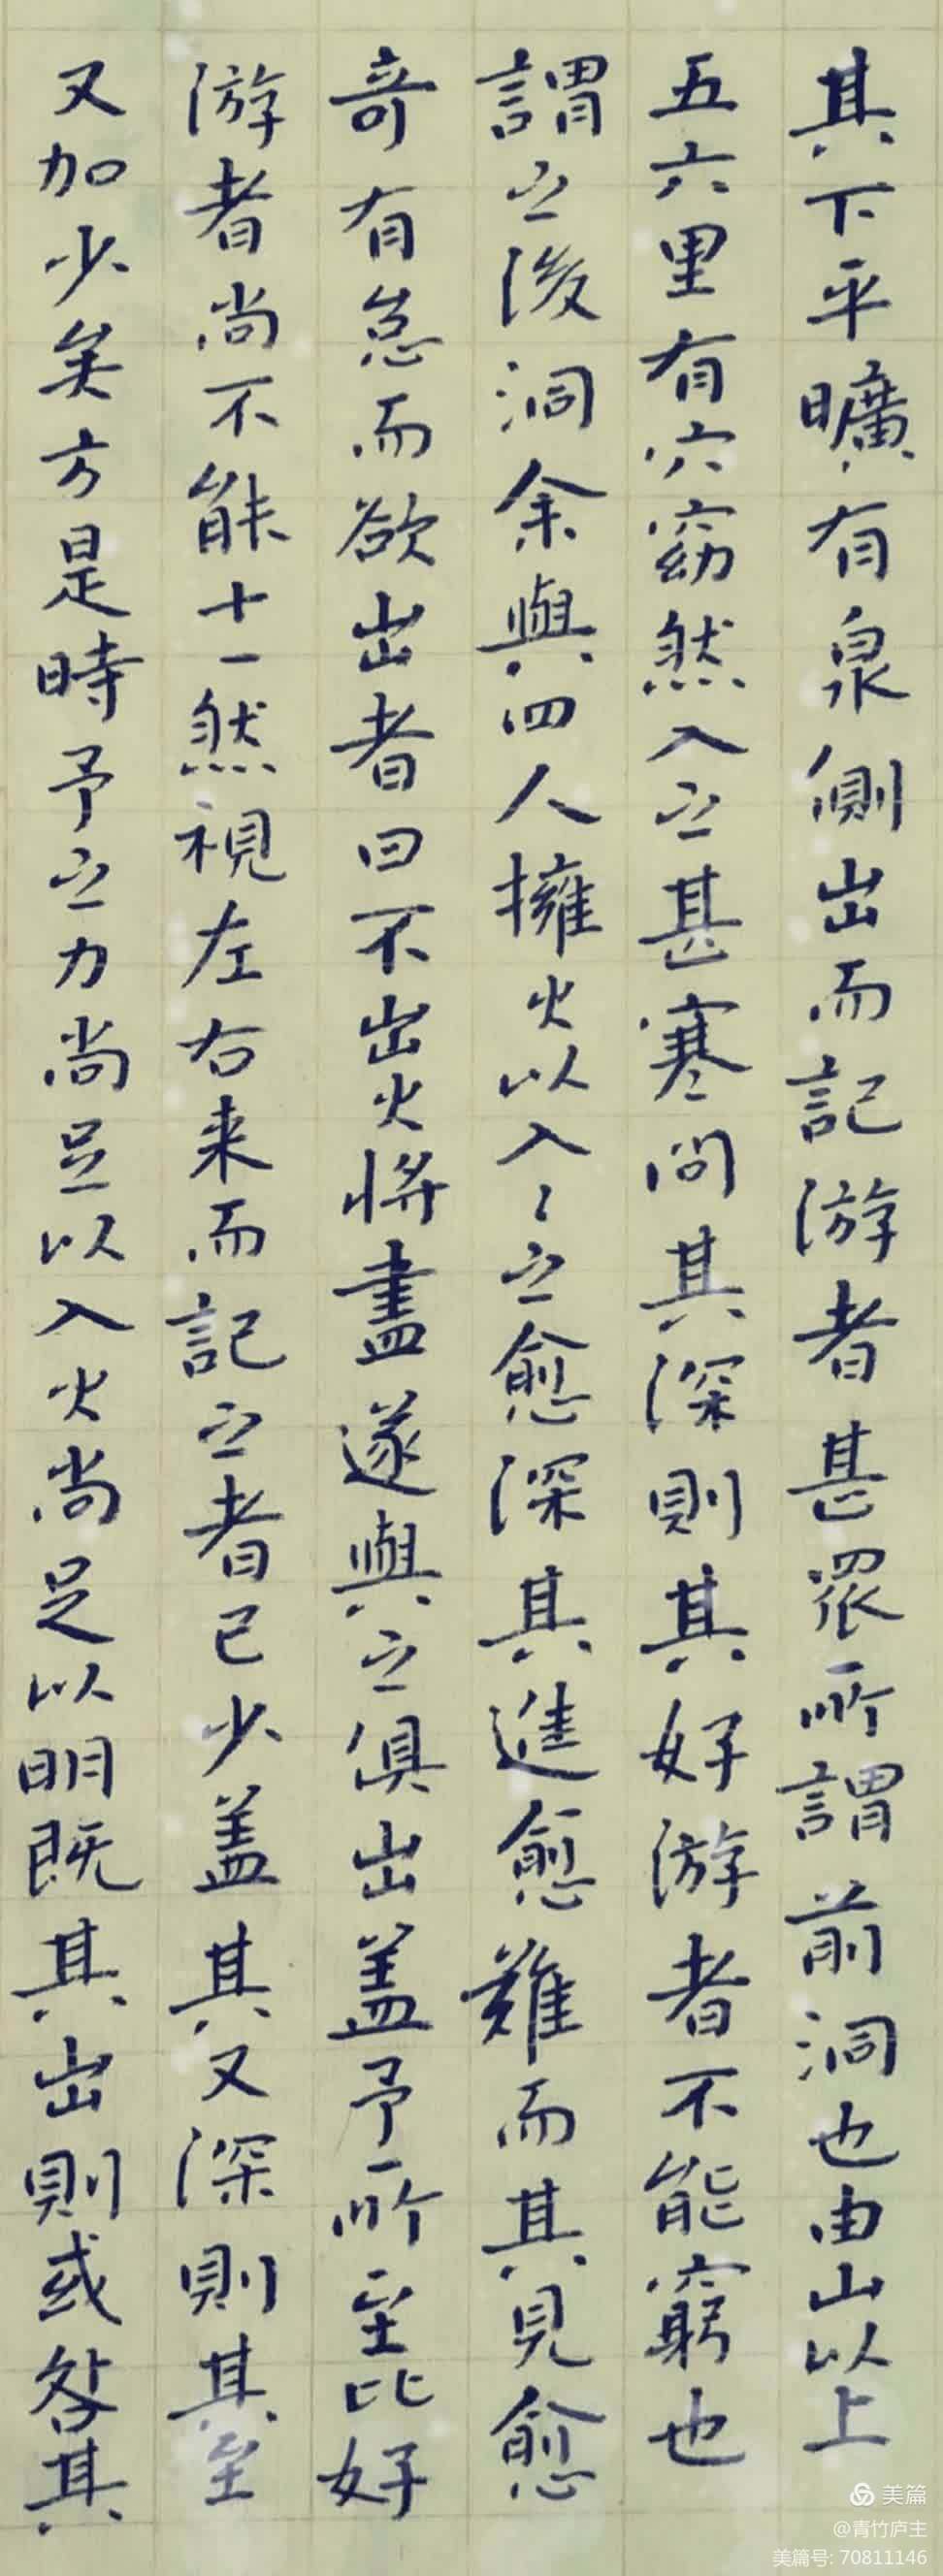 其下平曠有泉側出而記游者甚眾所謂前洞也由山以上
五六里有穴窈然入之甚寒問其深則其好游者不能窮也
謂之後洞余與四人擁火以入々之愈深其進愈難而其見愈
奇有怠而欲出者曰不出火將盡遂與之俱出蓋予所至比好
游者尚不能十一然視左右来而記之者已少蓋其又深則其至
又加少矣方是時予之力尚足以入火尚足以明既其出則或咎其
美篇
@青竹庐主
美篇号: 70811146